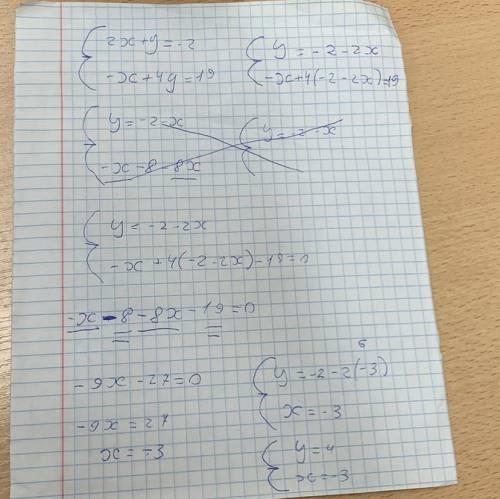 2x+y=-2
-x+4y=19
y=-2-2x
-x+4(-2-2x)=19
y=-2-x
-x-8-8x
y=-2-x
y=-2-2x
-x+4(-2-2x)-19=0
-x-8-8x-19=0
-9x-27=0
-9x=27
x=-3
6
y=-2-2(-3)
x=-3
y=4
x=-3